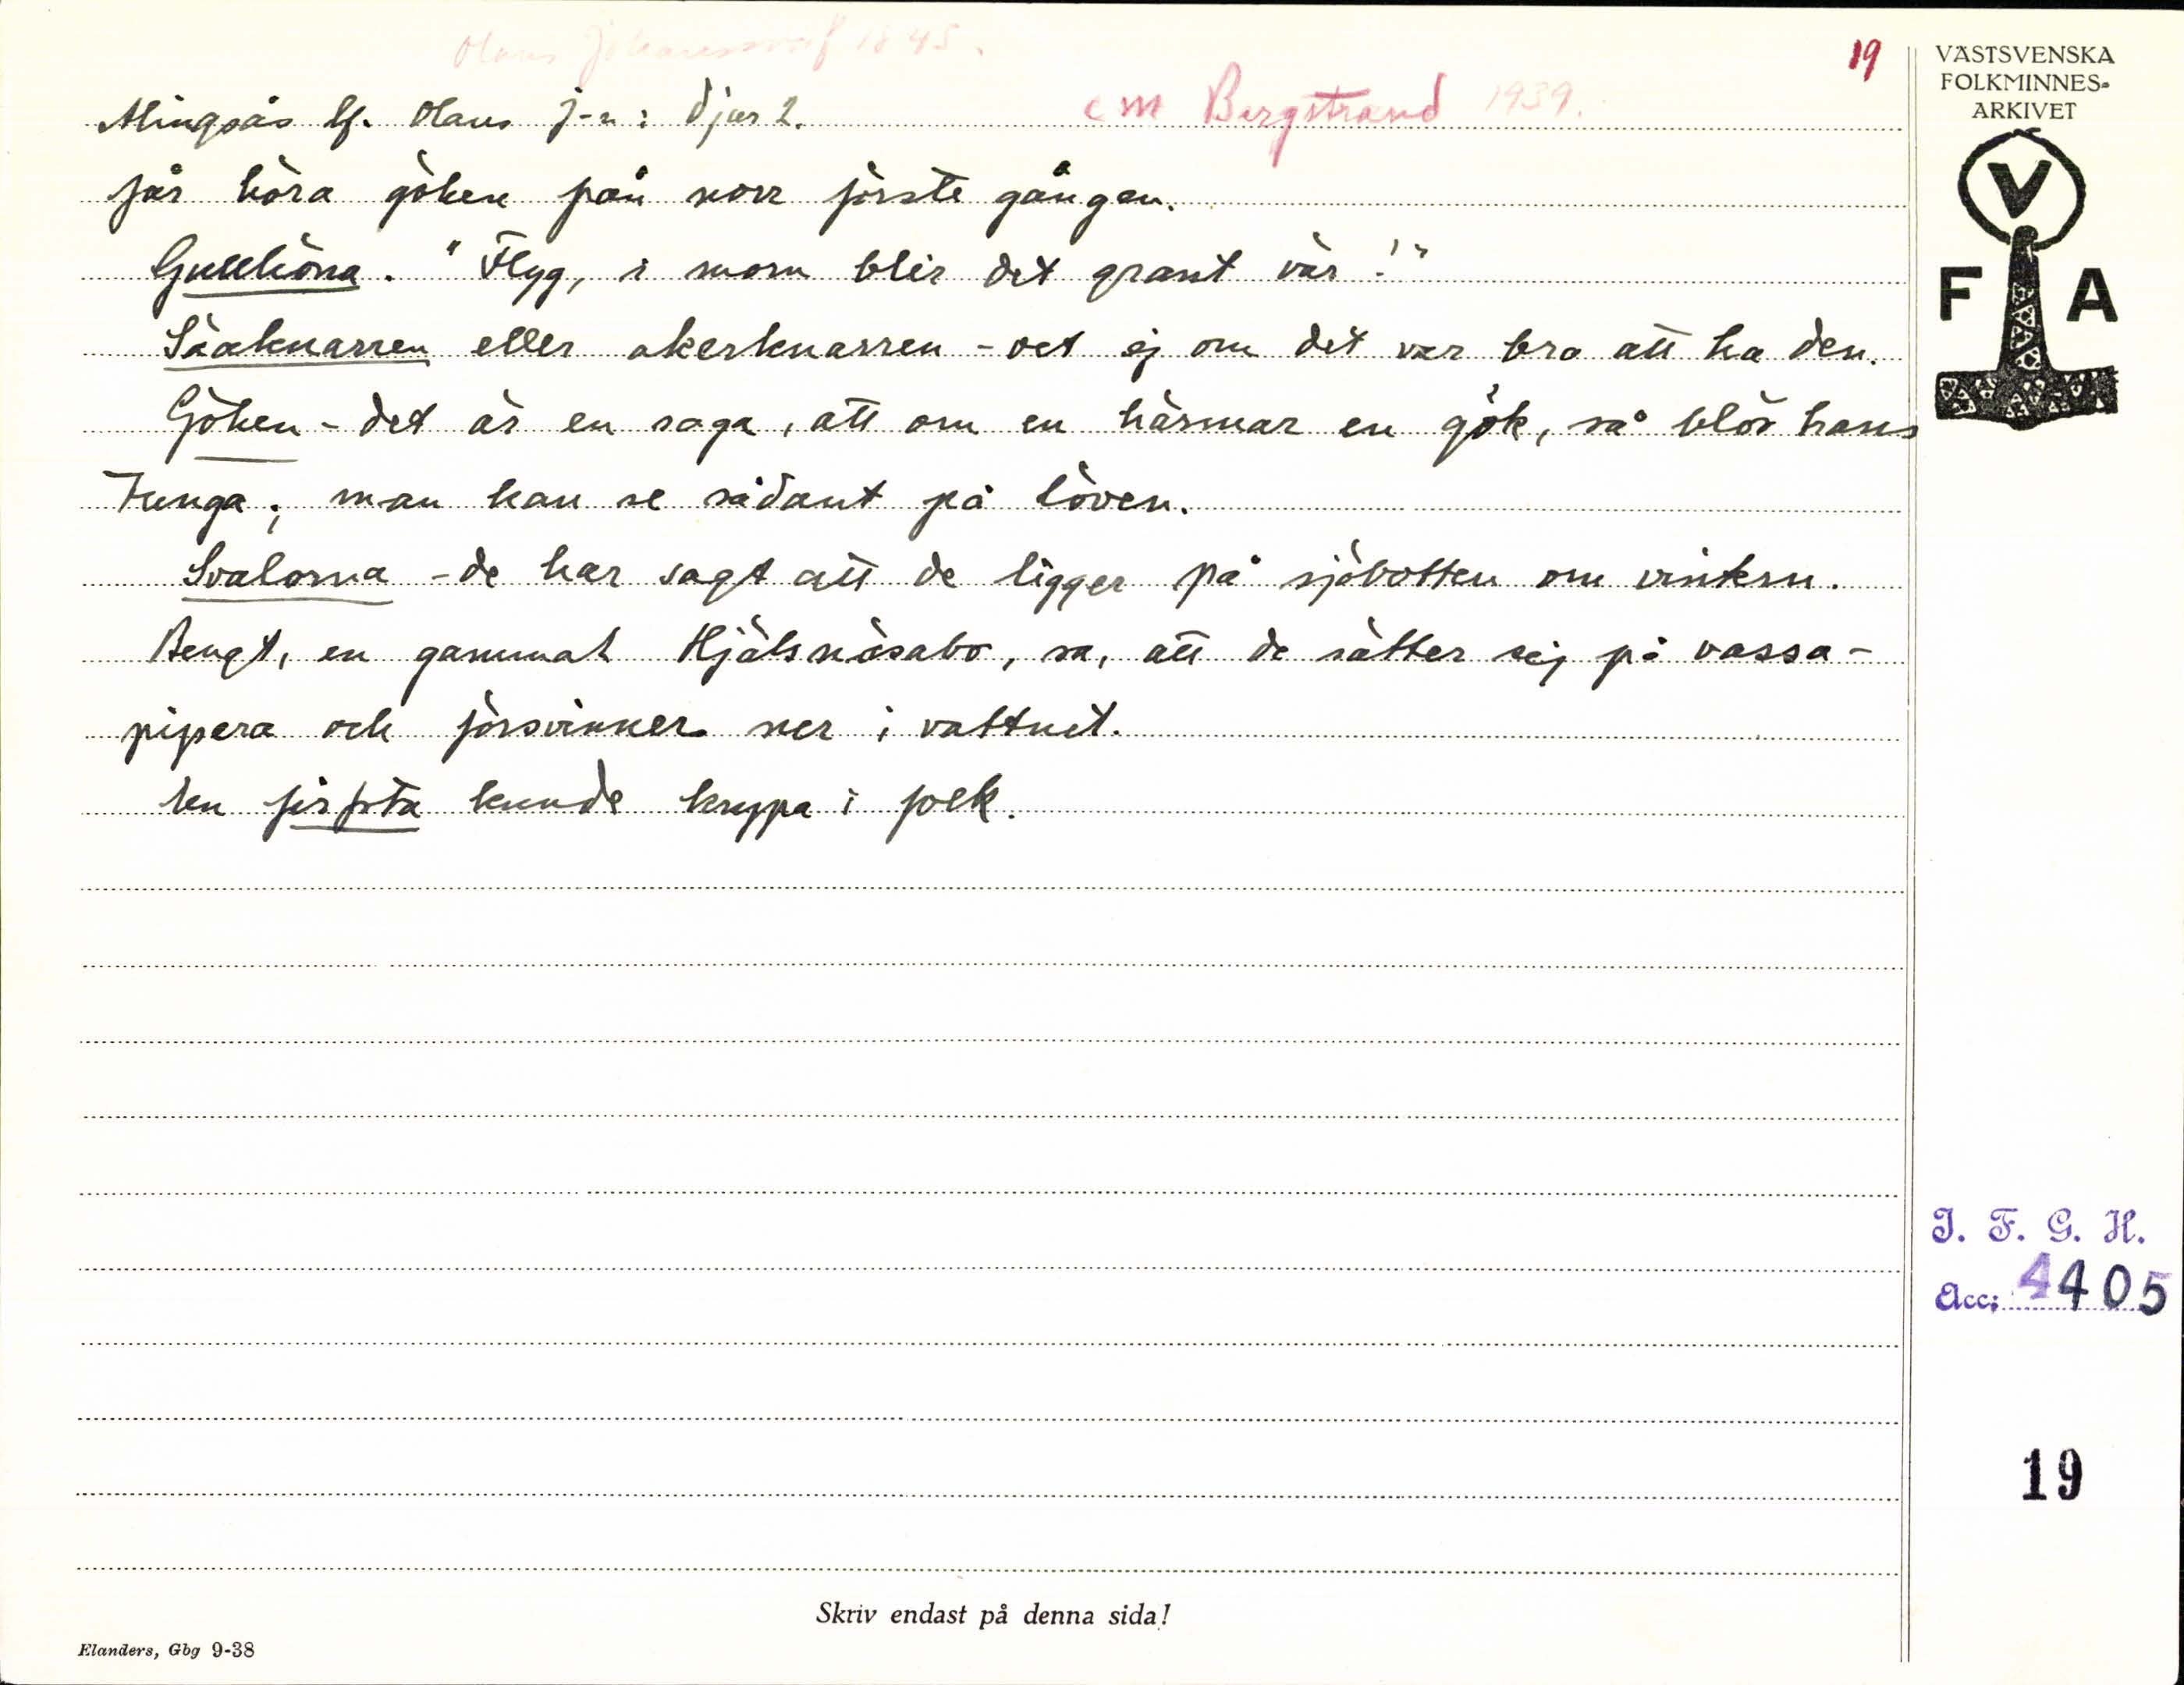 Olaus Johansson f 1845.
19
Alingsås lf. Olaus J-n: Djur 2.
CM Bergstrand 1939.
får höra göken från norr förste gången.
Gullhöna. "Flyg, i morn blir det grant vär!"
Säaknarren eller akerknarren - vet ej om det var bra att ha den.
Göken - det är en saga, att om en härmar en gök, så blör hans
tunga; man kan se sådant på löven.
Svalorna - de har sagt att de ligger på sjöbotten om vintern.
Bengt, en gammal Hjälmåsabo, sa, att de sätter sej på vassa-
pipera och försvinner ner i vattnet.
En firfota kunde krypa i folk.
VÄSTSVENSKA
FOLKMINNES-
ARKIVET
V
F A
I. F. G. H.
Acc: 4405
19
Skriv endast på denna sida!
Elanders, Gbg 9-38